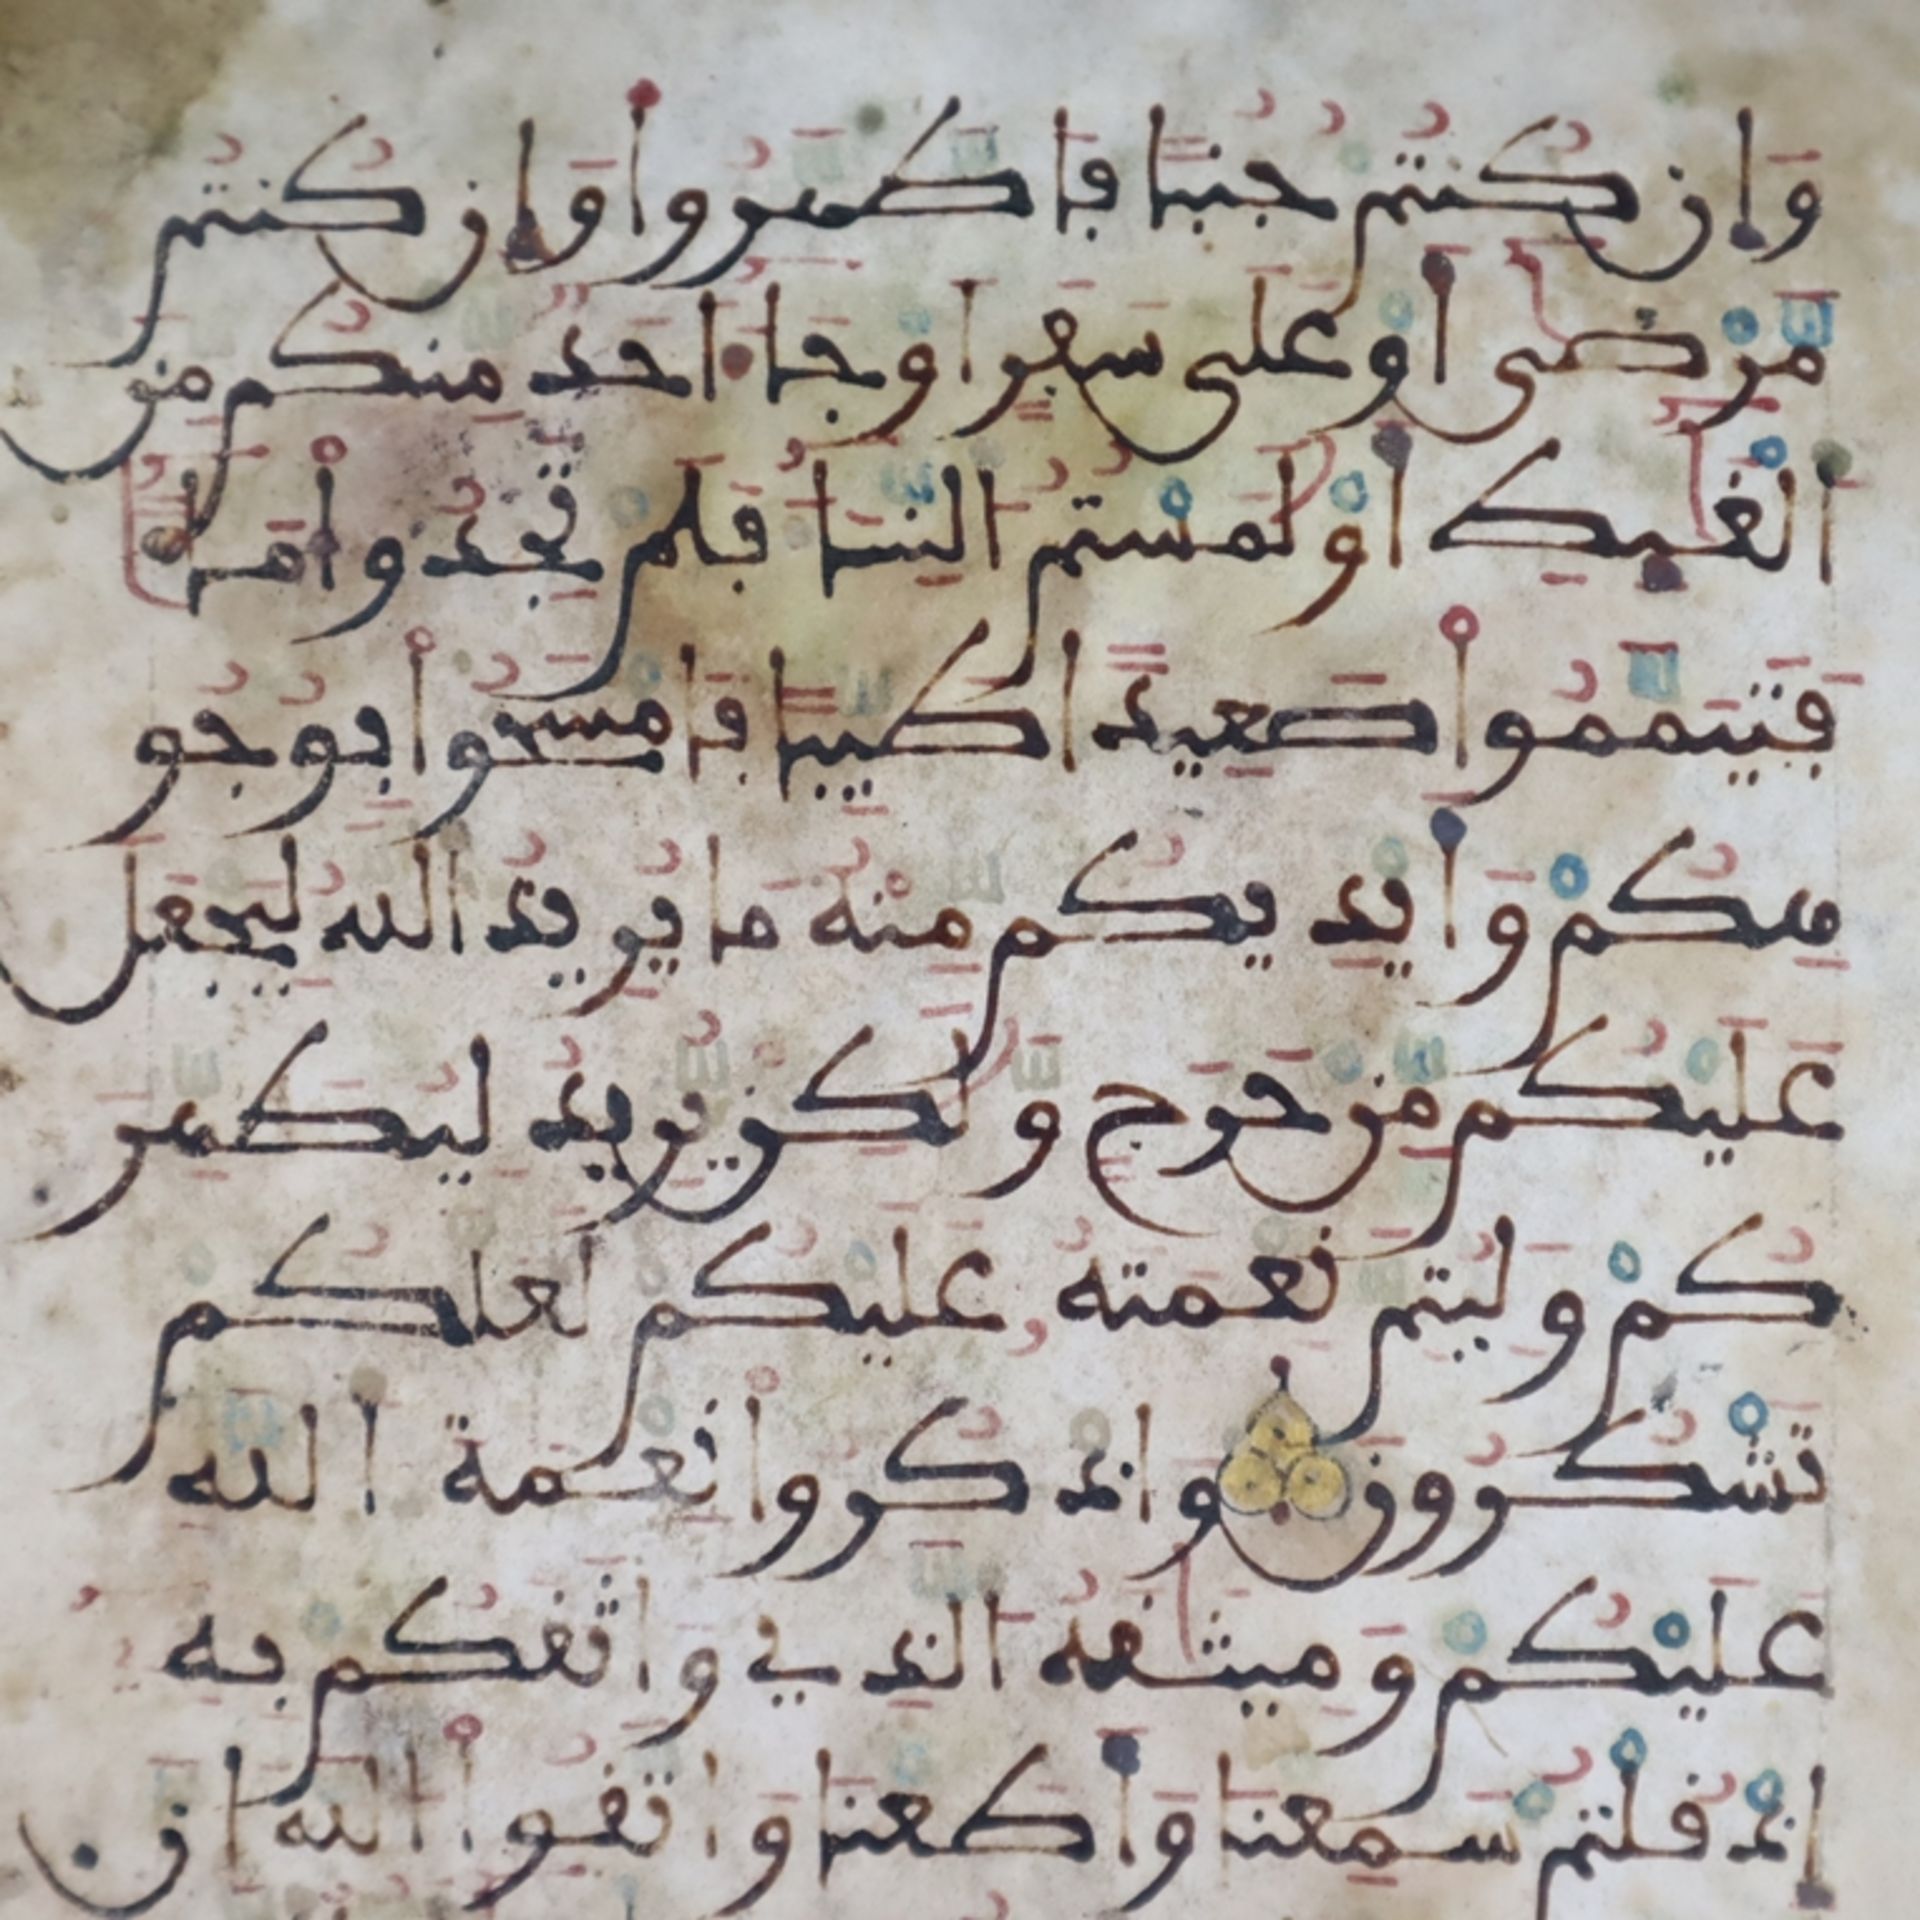 وَإِن كُنتُمْ جُنُبًا فَاطَّهَّرُوا وَإِن كُنتُم
مَّرْضَىٰ أَوْ عَلَىٰ سَفَرٍ أَوْ جَا أَحَدٌ مِّنكُم مِّنَ
الْغَٰيِطِ أَوْ لَٰمَسْتُمُ النِّسَا فَلَمْ تَجِدُوا مَا
فَتَيَمَّمُوا صَعِيدًا طَيِّبًا فَامْسَحُوا بِوُجُو
هِكُمْ وَأَيْدِيكُم مِّنْهُ مَا يُرِيدُ اللَّهُ لِيَجْعَلَ
عَلَيْكُم مِّنْ حَرَجٍ وَلَٰكِن يُرِيدُ لِيُطَهِّرَ
كُمْ وَلِيُتِمَّ نِعْمَتَهُ عَلَيْكُمْ لَعَلَّكُمْ
تَشْكُرُونَ وَاذْكُرُوا نِعْمَةَ اللَّهِ
عَلَيْكُمْ وَمِيثَٰقَهُ الَّذِي وَاثَقَكُم بِهِ
إِذْ قُلْتُمْ سَمِعْنَا وَأَطَعْنَا وَاتَّقُوا اللَّهَ إِنَّ